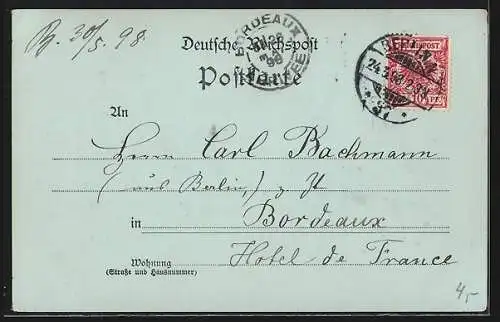 B. 30/5. 98.
Deutsche Reichspost
Postkarte
BORDEAUX
REICHSPOST
BERLIN
24.3.98
* 57 *
An
Herrn Carl Bachmann
(aus Berlin,) z. Zt
in Bordeaux
Wohnung Hotel de France
(Straße und Hausnummer)
4,-